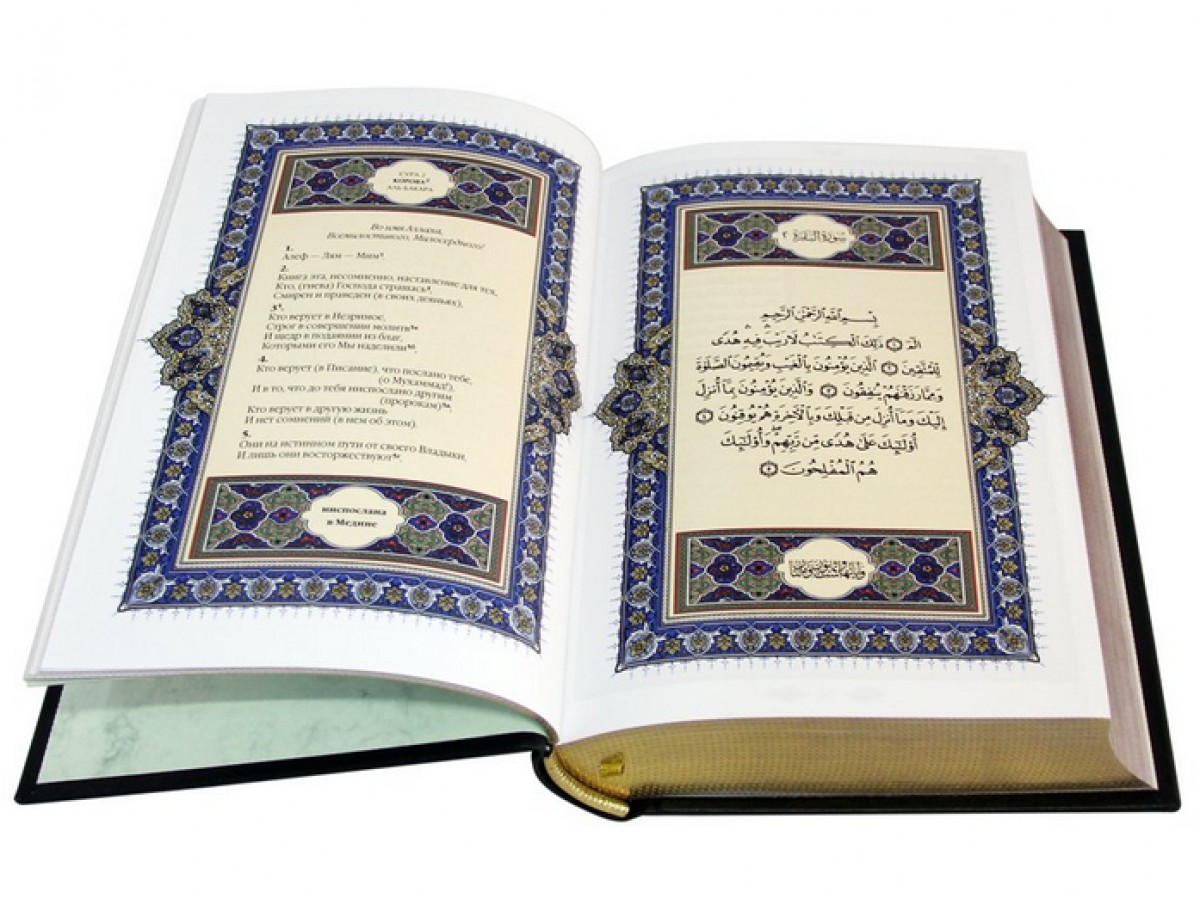 СУРА 2
КОРОВА²
АЛЬ-БАКАРА
Во имя Аллаха,
Всемилостивого, Милосердного!
1.
Алеф — Лям — Мим³.
2.
Книга эта, несомненно, наставление для тех,
Кто, (гнева) Господа страшась⁴,
Смирен и праведен (в своих деяньях),
3⁵.
Кто верует в Незримое,
Строг в совершении молитв
И щедр в подаянии из благ,
Которыми его Мы наделили
4.
Кто верует (в Писание), что послано тебе,
(о Мухаммад!),
И в то, что до тебя ниспослано другим
(пророкам)
Кто верует в другую жизнь
И нет сомнений (в нем об этом).
5.
Они на истинном пути от своего Владыки,
И лишь они восторжествуют
ниспослана
в Медине
سورة البقرة ٢
بِسْمِ ٱللَّهِ ٱلرَّحْمَٰنِ ٱلرَّحِيمِ
الٓمٓ ١ ذَٰلِكَ ٱلْكِتَٰبُ لَا رَيْبَ فِيهِ هُدًى
لِّلْمُتَّقِينَ ٢ ٱلَّذِينَ يُؤْمِنُونَ بِٱلْغَيْبِ وَيُقِيمُونَ ٱلصَّلَوٰةَ
وَمِمَّا رَزَقْنَٰهُمْ يُنفِقُونَ ٣ وَٱلَّذِينَ يُؤْمِنُونَ بِمَآ أُنزِلَ
إِلَيْكَ وَمَآ أُنزِلَ مِن قَبْلِكَ وَبِٱلْءَاخِرَةِ هُمْ يُوقِنُونَ ٤
أُو۟لَٰٓئِكَ عَلَىٰ هُدًى مِّن رَّبِّهِمْ وَأُو۟لَٰٓئِكَ
هُمُ ٱلْمُفْلِحُونَ ٥